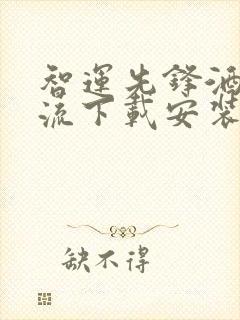 智運先鋒酒
流下載安裝
缺不得